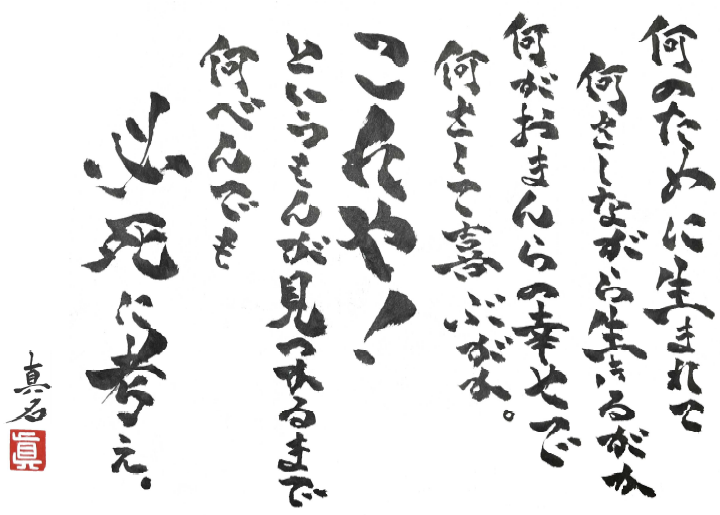 何のために生まれて
何をしながら生きるがか
何がおまんらの幸せで
何をして喜ぶがか。
これや!
というもんが見つかるまで
何べんでも
必死に考え。
真石
眞